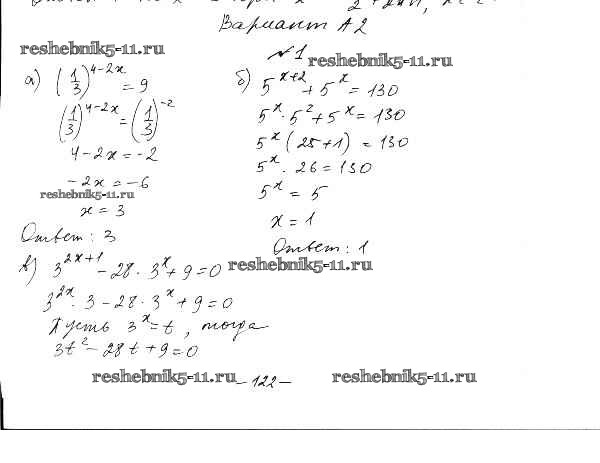 2
Вариант А2
№1
reshebnik5-11.ru
reshebnik5-11.ru
а) (1/3)^{4-2x} = 9
(1/3)^{4-2x} = (1/3)^{-2}
4-2x = -2
-2x = -6
reshebnik5-11.ru
x = 3
Ответ: 3
б) 5^{x+2} + 5^x = 130
5^x · 5^2 + 5^x = 130
5^x (25+1) = 130
5^x · 26 = 130
5^x = 5
x = 1
Ответ: 1
reshebnik5-11.ru
в) 3^{2x+1} - 28 · 3^x + 9 = 0
3^{2x} · 3 - 28 · 3^x + 9 = 0
Пусть 3^x = t, тогда
3t^2 - 28t + 9 = 0
reshebnik5-11.ru
-122-
reshebnik5-11.ru